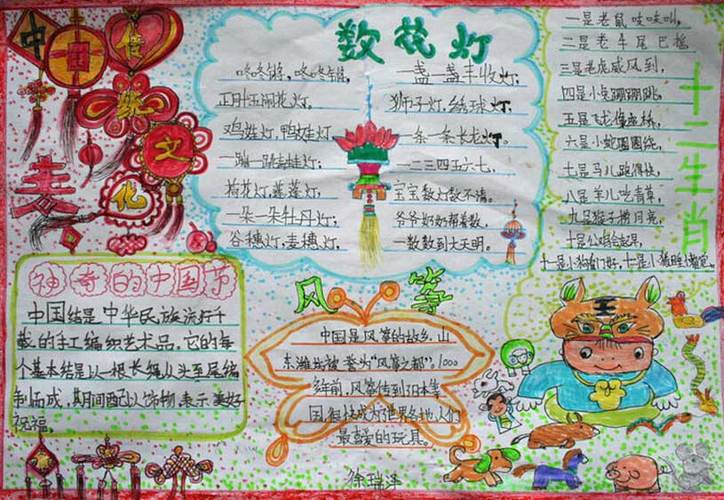 中国传统文化
数花灯
咚咚锵，咚咚锵，
正月十五闹花灯。
鸡娃灯，鸭娃灯，
一蹦一跳娃娃灯，
荷花灯，莲莲灯，
一朵一朵牡丹灯；
谷穗灯，麦穗灯，
一盏一盏丰收灯；
狮子灯，绣球灯，
一条一条长龙灯。
一二三四五六七，
宝宝数灯数不清。
爷爷奶奶帮着数，
一数数到大天明。
十二生肖
一是老鼠吱吱叫，
二是老牛尾巴摇
三是老虎威风到，
四是小兔蹦蹦跳，
五是飞龙像座桥，
六是小蛇圈圈绕，
七是马儿跑得快，
八是羊儿吃青草，
九是猴子捞月亮，
十是公鸡会起早，
十一是小狗看门好，十二是小猪
神奇的中国节
中国结是中华民族流行千
载的手工编织艺术品，它的每
个基本结是以一根长绳从头至尾编
制而成，其间配以饰物表示美好
祝福
风筝
中国是风筝的故乡，山
东潍坊被誉为“风筝之都”。1000
年前，风筝传到日本等
国，很快成为世界各地人们
最喜爱的玩具。
徐瑞泽